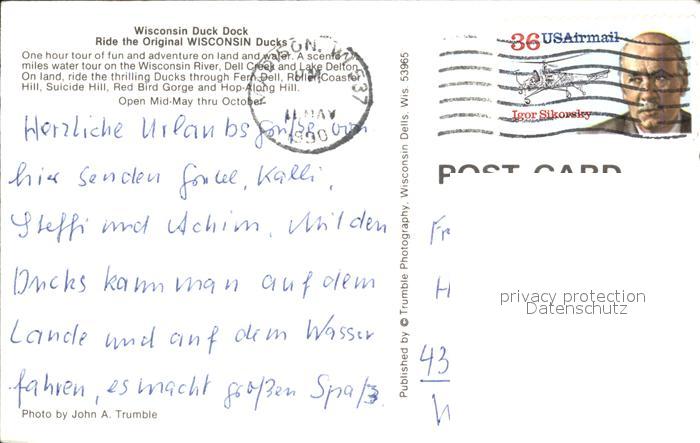 Wisconsin Duck Dock
Ride the Original WISCONSIN Ducks
One hour tour of fun and adventure on land and water. A scenic
miles water tour on the Wisconsin River, Dell Creek and Lake Delton.
On land, ride the thrilling Ducks through Fern Dell, Roller Coaster
Hill, Suicide Hill, Red Bird Gorge and Hop-Along Hill.
Open Mid-May thru October
Herzliche Urlaubsgrüße von
hier senden Kalli,
Steffi und Achim. Mit den
Ducks kann man auf dem
Lande und auf dem Wasser
fahren, es macht großen Spaß.
Photo by John A. Trumble
Published by © Trumble Photography, Wisconsin Dells, Wis. 53965
36 USAirmail
Igor Sikorsky
POST CARD
Fr
H
43
privacy protection
Datenschutz